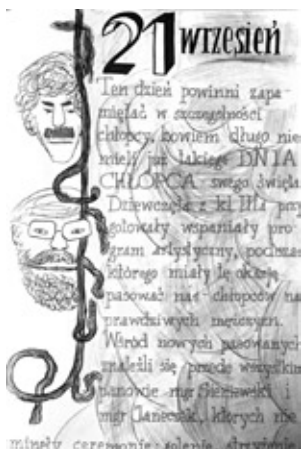 21 wrzesień
Ten dzień powinni zapa-
miętać w szczególności
chłopcy, bowiem długo nie
mieli już takiego DNIA
CHŁOPCA - swego święta.
Dziewczęta z kl. IIIa przy
gotowały wspaniały pro-
gram artystyczny, podczas
którego miały tę okazję
pasować nas - chłopców na
prawdziwych mężczyzn.
Wśród nowych pasowanych
znaleźli się przede wszystkim
panowie mgr i
mgr Janeczek, których nie
minęły ceremonie: golenie, strzyżenie